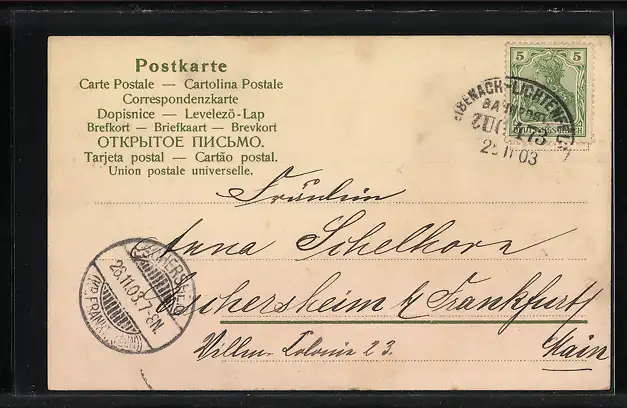 Postkarte
Carte Postale — Cartolina Postale
Correspondenzkarte
Dopisnice — Levelező-Lap
Brefkort — Briefkaart — Brevkort
ОТКРЫТОЕ ПИСЬМО.
Tarjeta postal — Cartão postal.
Union postale universelle.
5 5
EISENACH-LICHTENFELS
BAHNPOST
ZUG
25 11 03
Fräulein
Anna Schelkorn
Eschersheim b/ Frankfurt
Main
Villen-Colonie 23.
ESCHERSHEIM
26.11.03. 7-8N.
FRANKFURT